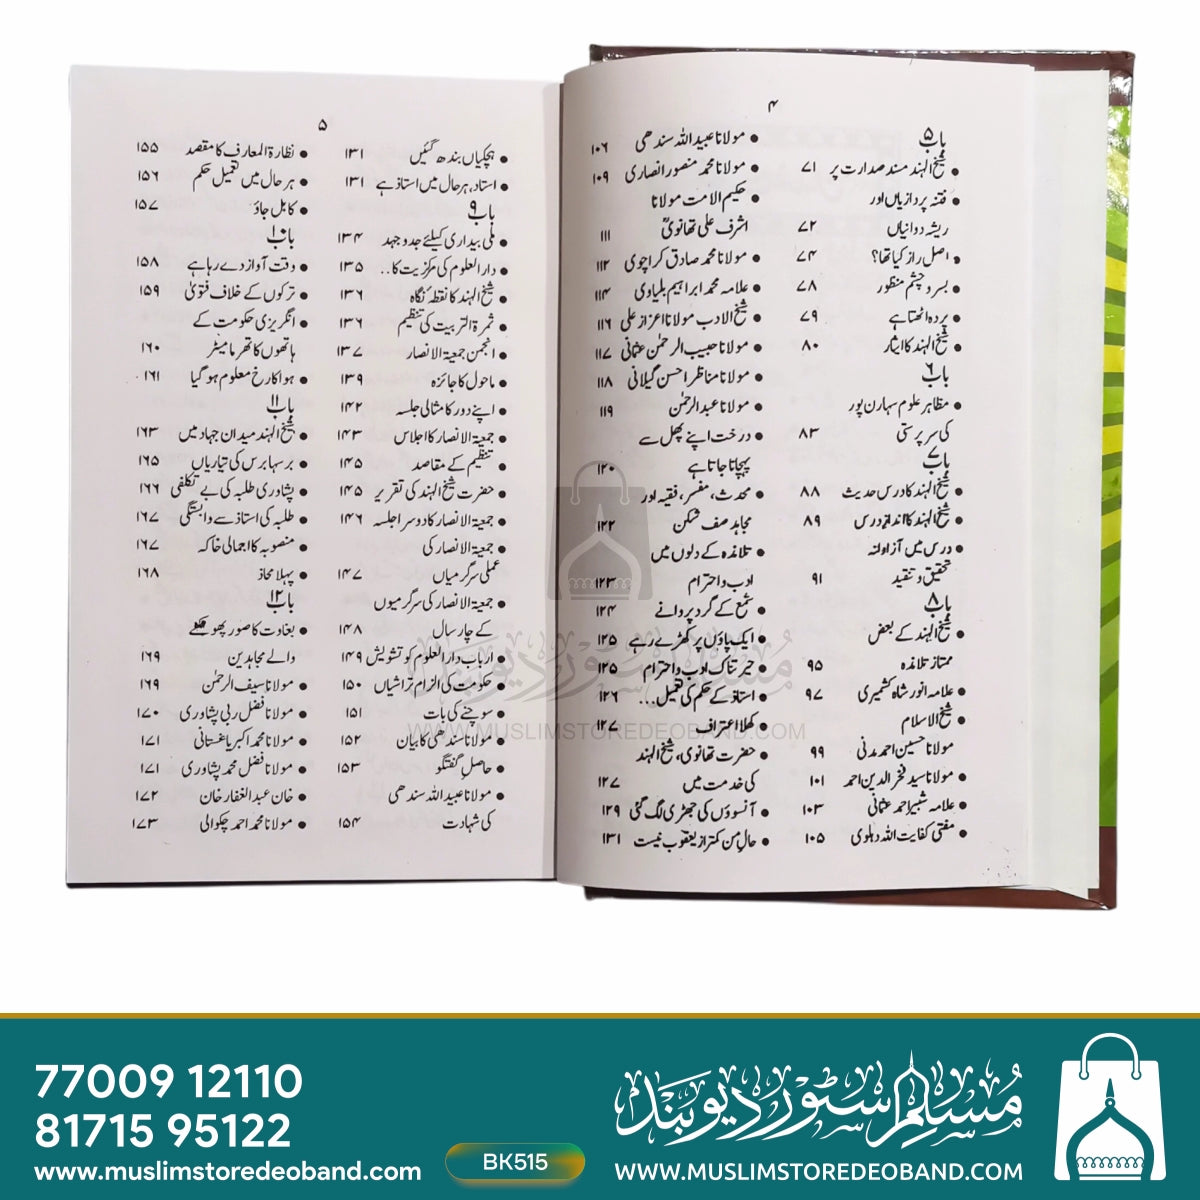 ۴
باب ۵
• شیخ الہند مسند صدارت پر ۷۱
• فتنہ پردازیاں اور
ریشہ دوانیاں ۷۲
• اصل راز کیا تھا؟ ۷۴
• بسر و چشم منظور ۷۸
• پردہ اٹھتا ہے ۷۹
• شیخ الہند کا ایثار ۸۰
باب ۶
• مظاہر علوم سہارن پور
کی سرپرستی ۸۳
باب ۷
• شیخ الہند کا درس حدیث ۸۸
• شیخ الہند کا انداز درس ۸۹
• درس میں آزادانہ
تحقیق و تنقید ۹۱
باب ۸
• شیخ الہند کے بعض
ممتاز تلامذہ ۹۵
• علامہ انور شاہ کشمیری ۹۷
• شیخ الاسلام
مولانا حسین احمد مدنی ۹۹
• مولانا سید فخر الدین احمد ۱۰۱
• علامہ شبیر احمد عثمانی ۱۰۳
• مفتی کفایت اللہ دہلوی ۱۰۵
• مولانا عبید اللہ سندھی ۱۰۶
• مولانا محمد منصور انصاری ۱۰۹
• حکیم الامت مولانا
اشرف علی تھانویؒ ۱۱۱
• مولانا محمد صادق کراچوی ۱۱۲
• علامہ محمد ابراہیم بلیاوی ۱۱۴
• شیخ الادب مولانا اعزاز علی ۱۱۶
• مولانا حبیب الرحمٰن عثمانی ۱۱۷
• مولانا مناظر احسن گیلانی ۱۱۸
• مولانا عبد الرحمٰن ۱۱۹
• درخت اپنے پھل سے
پہچانا جاتا ہے ۱۲۰
• محدث، مفسر، فقیہ اور
مجاہد صف شکن ۱۲۲
• تلامذہ کے دلوں میں
ادب و احترام ۱۲۳
• شمع کے گرد پروانے ۱۲۴
• ایک پاؤں پر کھڑے رہے ۱۲۵
• حیرتناک ادب و احترام ۱۲۵
• استاذ کے حکم کی تعمیل... ۱۲۶
• کھلا اعتراف ۱۲۷
• حضرت تھانوی، شیخ الہند
کی خدمت میں ۱۲۷
• آنسوؤں کی جھڑی لگ گئی ۱۲۹
• حال من کمتر از یعقوب نیست ۱۳۱
۵
• ہچکیاں بندھ گئیں ۱۳۱
• استاد، ہر حال میں استاذ ہے ۱۳۱
باب ۹
• ملی بیداری کیلئے جدوجہد ۱۳۴
• دارالعلوم کی مرکزیت کا.. ۱۳۵
• شیخ الہند کا نقطۂ نگاہ ۱۳۶
• ثمرۃ التربیت کی تنظیم ۱۳۶
• انجمن جمعیۃ الانصار ۱۳۷
• ماحول کا جائزہ ۱۳۹
• اپنے دور کا مثالی جلسہ ۱۴۲
• جمعیۃ الانصار کا اجلاس ۱۴۳
• تنظیم کے مقاصد ۱۴۵
• حضرت شیخ الہند کی تقریر ۱۴۵
• جمعیۃ الانصار کا دوسرا جلسہ ۱۴۶
• جمعیۃ الانصار کی
عملی سرگرمیاں ۱۴۷
• جمعیۃ الانصار کی سرگرمیوں
کے چار سال ۱۴۸
• ارباب دارالعلوم کو تشویش ۱۴۹
• حکومت کی الزام تراشیاں ۱۵۰
• سوچنے کی بات ۱۵۱
• مولانا سندھی کا بیان ۱۵۲
• حاصل گفتگو ۱۵۳
• مولانا عبید اللہ سندھی
کی شہادت ۱۵۴
• نظارۃ المعارف کا مقصد ۱۵۵
• ہر حال میں تعمیل حکم ۱۵۶
• کابل جاؤ ۱۵۷
باب ۱۰
• وقت آواز دے رہا ہے ۱۵۸
• ترکوں کے خلاف فتویٰ ۱۵۹
• انگریزی حکومت کے
ہاتھوں کا تھرمامیٹر ۱۶۰
• ہوا کا رخ معلوم ہو گیا ۱۶۱
باب ۱۱
• شیخ الہند میدان جہاد میں ۱۶۳
• برسہا برس کی تیاریاں ۱۶۵
• پشاوری طلبہ کی بے تکلفی ۱۶۶
• طلبہ کی استاذ سے وابستگی ۱۶۷
• منصوبہ کا اجمالی خاکہ ۱۶۷
• پہلا محاذ ۱۶۸
باب ۱۲
• بغاوت کا صور پھونکنے
والے مجاہدین ۱۶۹
• مولانا سیف الرحمٰن ۱۶۹
• مولانا فضل ربی پشاوری ۱۷۰
• مولانا محمد اکبر یاغستانی ۱۷۱
• مولانا فضل محمد پشاوری ۱۷۱
• خان عبد الغفار خان ۱۷۲
• مولانا محمد احمد چکوالی ۱۷۳
مسلم سٹور دیوبند
WWW.MUSLIMSTOREDEOBAND.COM
77009 12110
81715 95122
www.muslimstoredeoband.com
BK515
مسلم سٹور دیوبند
WWW.MUSLIMSTOREDEOBAND.COM